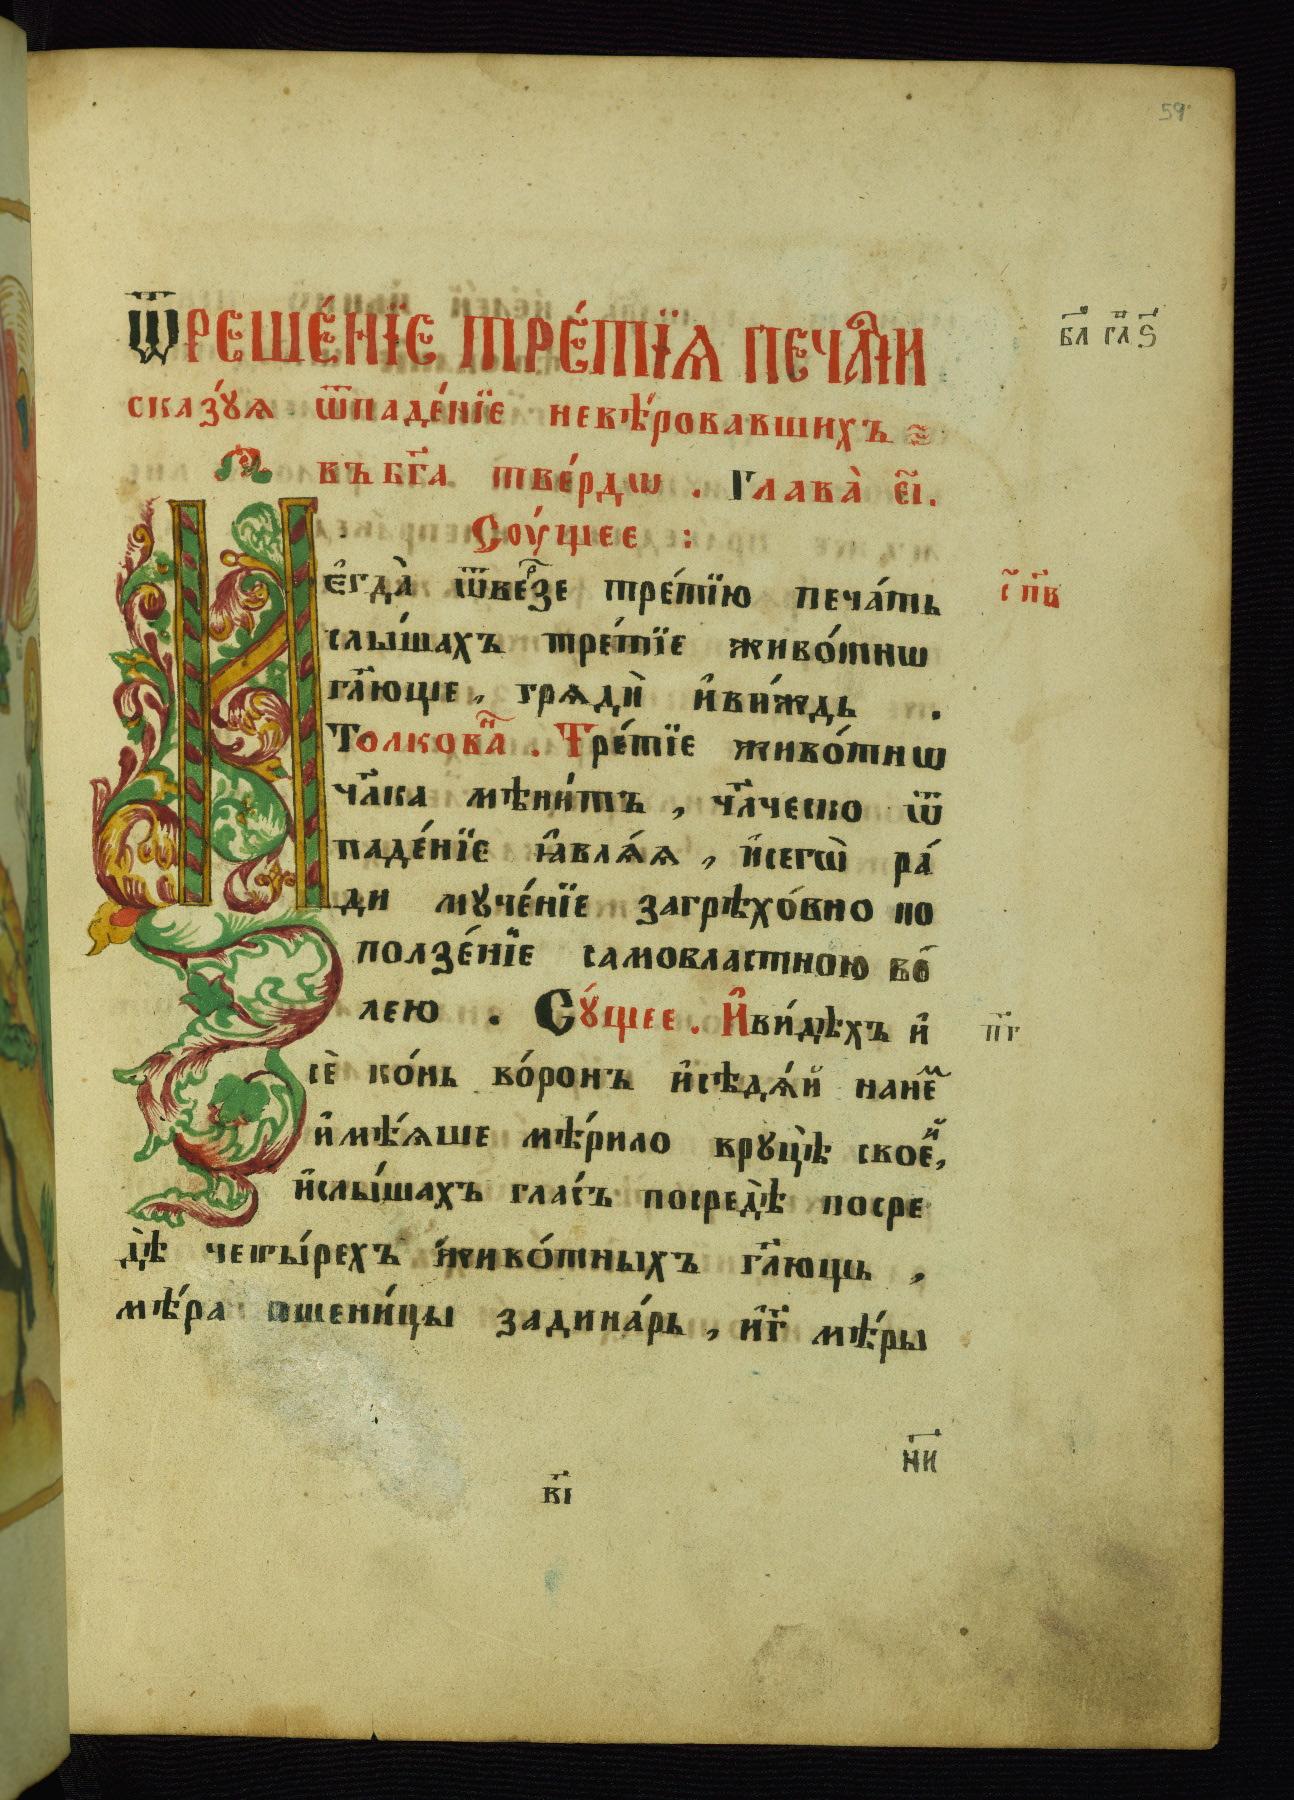 59
Ѿреше́нїе тре́тїѧ печа́ти
бл҃ гл҃ ѕ҃
сказꙋ́ѧ ѿпаде́нїе невѣ́ровавшихъ
въ бг҃а тве́рдѡ . Глава̀ є҃і.
Соу́щее :
И҆ є҆гда̀ ѿве́рзе тре́тїю печа́ть
с҃ пв҃
слы́шахъ тре́тїе живо́тнѡ
гл҃юще , грѧдѝ и҆ви́ждь .
Толкова́н . Тре́тїе живо́тнѡ
чл҃ка мѣни́тъ , чл҃ческо ѿ
паде́нїе ꙗ҆влѧ́ѧ , и҆сегѡ̀ ра́
ди мꙋче́нїе загрѣхо́вно по
ползе́нїе самовластною во́
лею . Сꙋ́щее . И҆ви́дѣхъ и҆
пг҃
сѐ ко́нь во́ронъ и҆сѣдѧ́й нане́м
и҆мѣ́ѧше мѣ́рило врꙋцѣ̀ свое́й ,
и҆слы́шахъ гла́съ посредѣ̀ посре
дѣ̀ четы́рехъ живо́тныхъ гл҃ющь ,
мѣ́ра пшени́цы задина́рь , и҆г҃ мѣ́ры
ни҃
в҃і